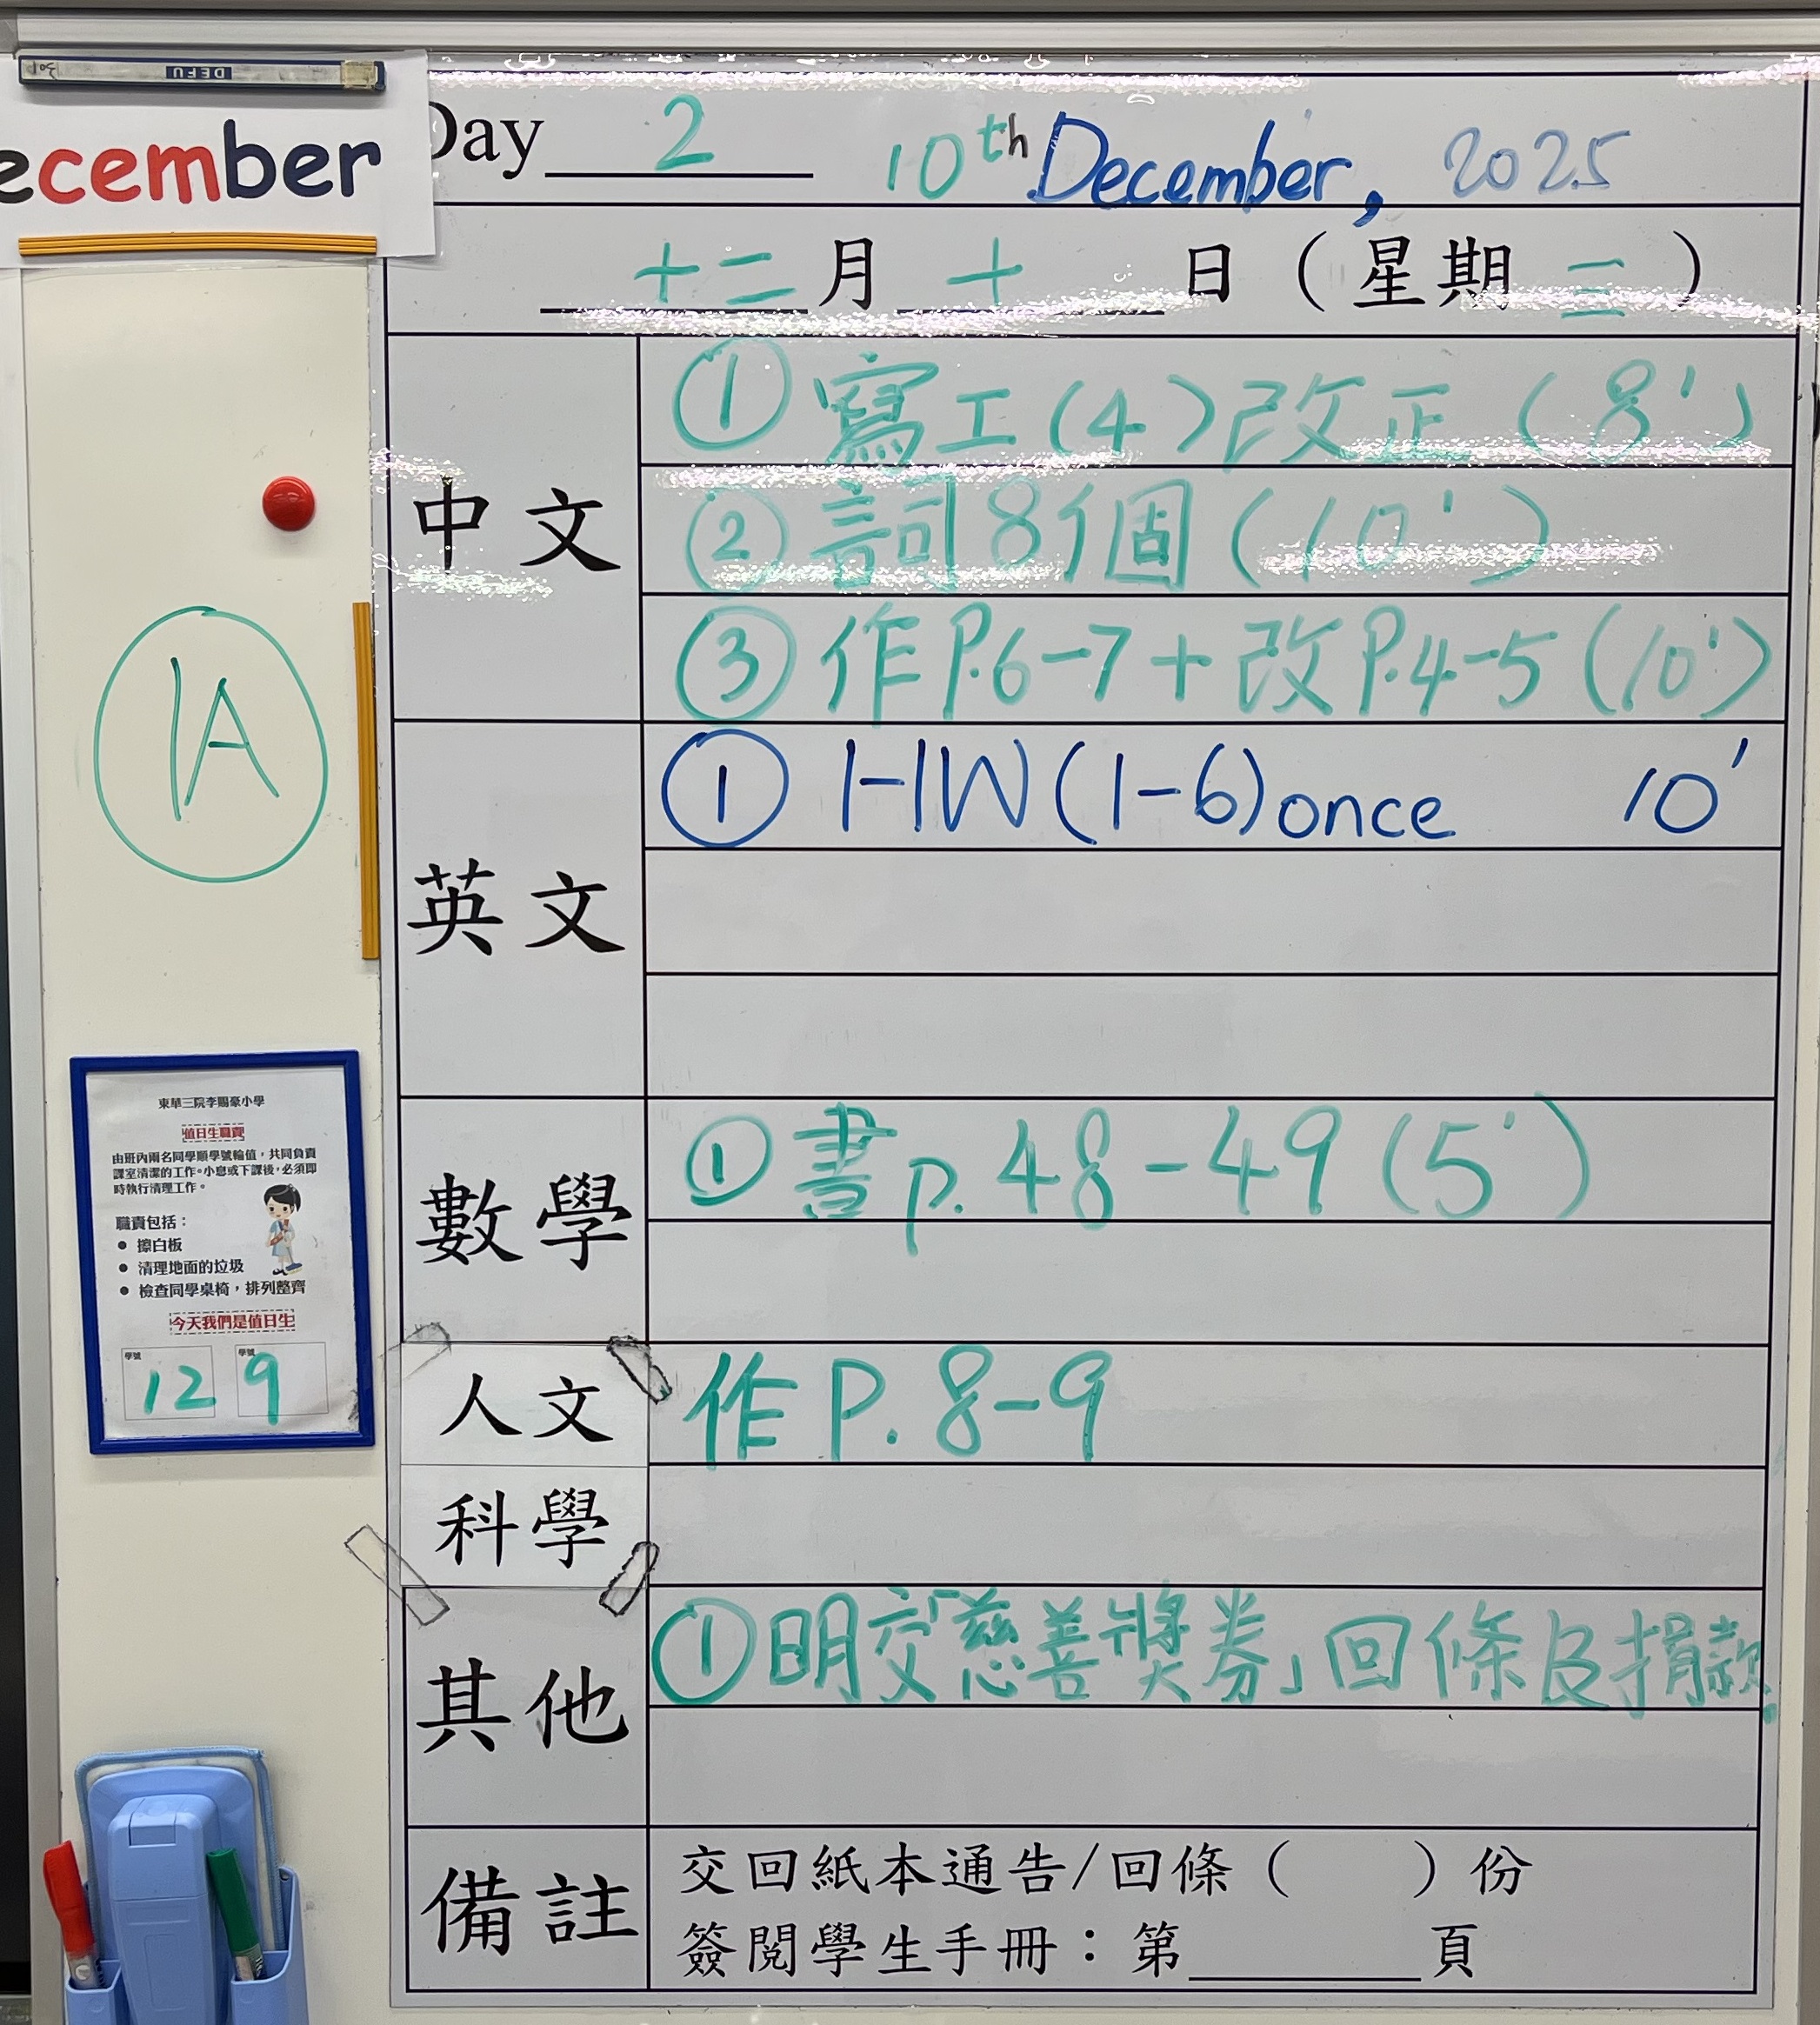 DEFU
ecember
Day 2 10th December, 2025
十二月十日（星期三）
中文
①寫工(4)改正(8')
②詞8個(10')
③作P.6-7+改P.4-5(10')
英文
① HW(1-6)once 10'
數學
①書p.48-49(5')
人文
作P.8-9
科學
其他
①明交「慈善獎券」回條及捐款.
備註
交回紙本通告/回條（ ）份
簽閱學生手冊：第______頁
1A
東華三院李賜豪小學
值日生職責
由班內兩名同學順學號輪值，共同負責
課室清潔的工作。小息或下課後，必須即
時執行清理工作。
職責包括：
● 擦白板
● 清理地面的垃圾
● 檢查同學桌椅，排列整齊
今天我們是值日生
學號 12 學號 9